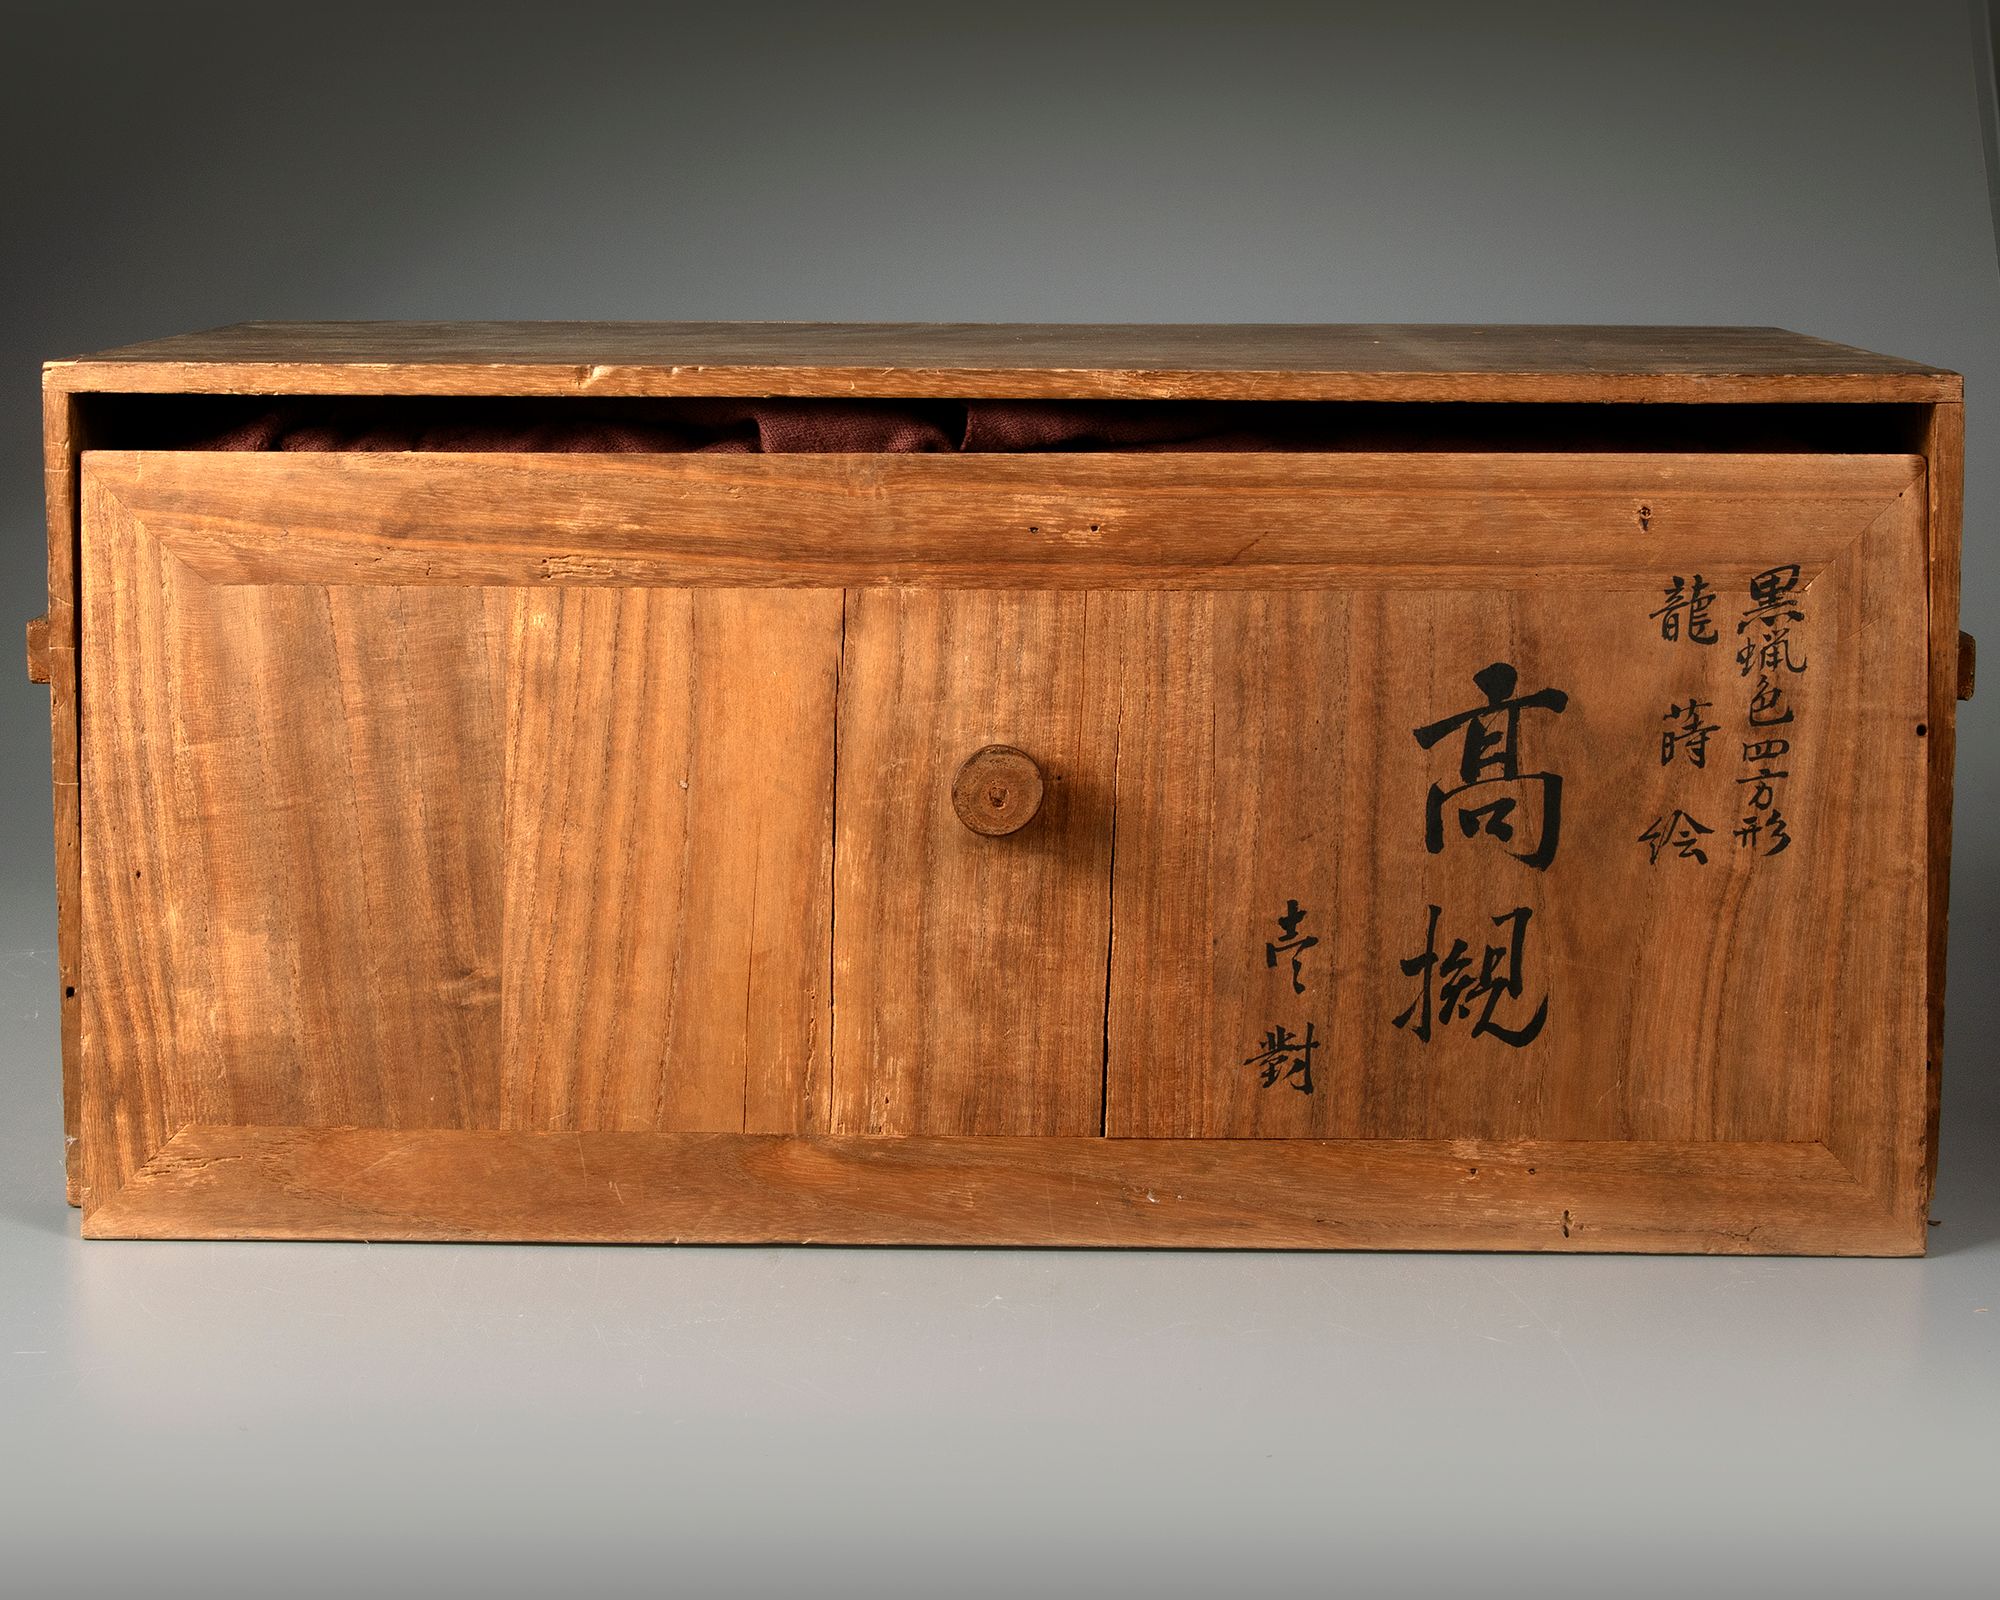 黒蝋色四方形
龍蒔絵
高槻
壱對